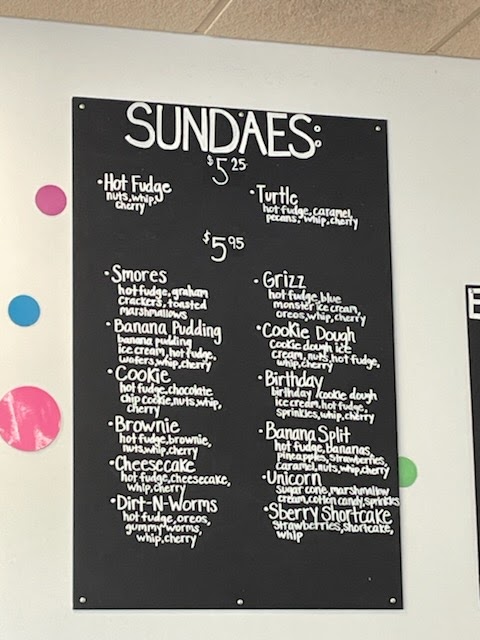 SUNDAES:
$5.25
• Hot Fudge
nuts, whip,
cherry
• Turtle
hot fudge, caramel,
pecans, whip, cherry
$5.95
• Smores
hot fudge, graham
crackers, toasted
marshmallows
• Banana Pudding
banana pudding
ice cream, hot fudge,
wafers, whip, cherry
• Cookie
hot fudge, chocolate
chip cookie, nuts, whip,
cherry
• Brownie
hot fudge, brownie,
nuts, whip, cherry
• Cheesecake
hot fudge, cheesecake,
whip, cherry
• Dirt-N-Worms
hot fudge, oreos,
gummy worms,
whip, cherry
• Grizz
hot fudge, blue
monster ice cream,
oreos, whip, cherry
• Cookie Dough
cookie dough ice
cream, nuts, hot fudge,
whip, cherry
• Birthday
birthday/cookie dough
ice cream, hot fudge,
sprinkles, whip, cherry
• Banana Split
hot fudge, bananas,
pineapples, strawberries,
caramel, nuts, whip, cherry
• Unicorn
sugar cone, marshmallow
cream, cotton candy, sprinkles
• Sberry Shortcake
strawberries, shortcake,
whip